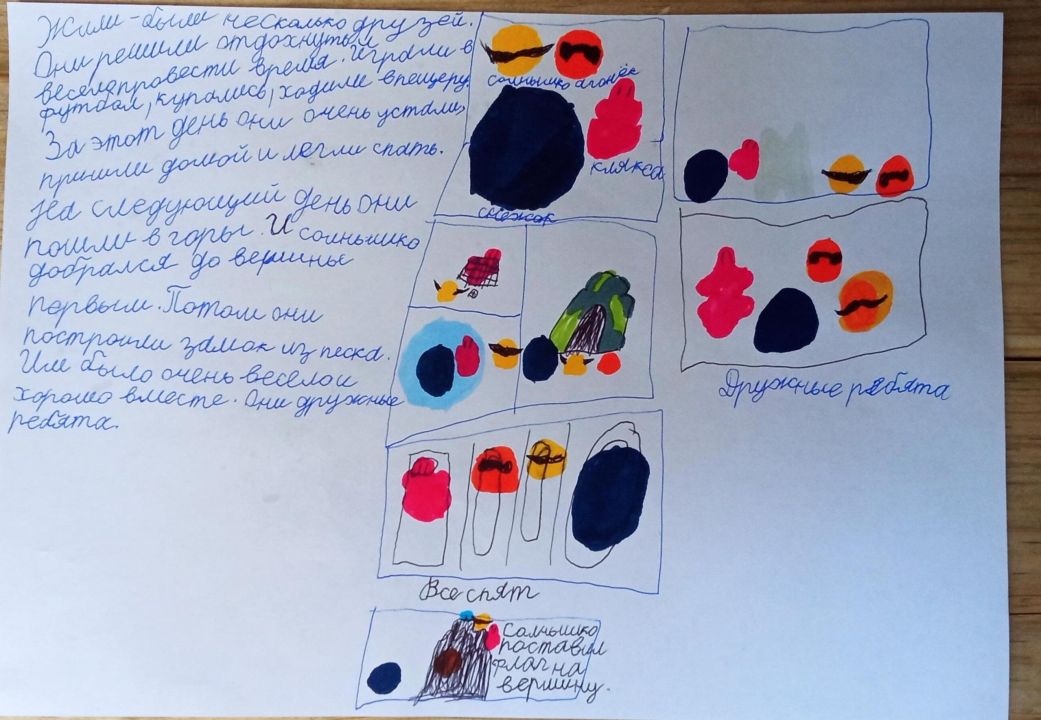 Жили-были несколько друзей.
Они решили отдохнуть и
весело провести время. Играли в
футбол, купались, ходили в пещеру.
За этот день они очень устали,
пришли домой и легли спать.
На следующий день они
пошли в горы. И солнышко
добрался до вершины
первым. Потом они
построили замок из песка.
Им было очень весело и
хорошо вместе. Они дружные
ребята.
солнышко огонёк
клякса
снежок
Все спят
Солнышко
поставил
флаг на
вершину.
Дружные ребята